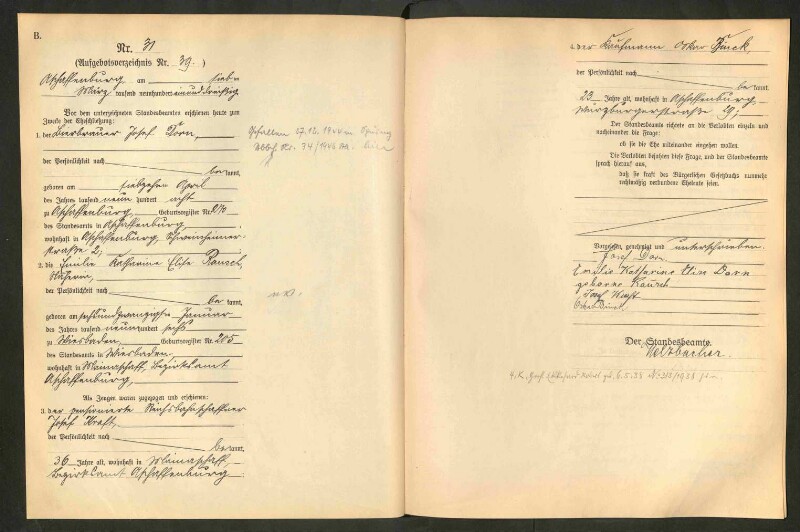 B.
Nr. 31
(Aufgebotsverzeichnis Nr. 39.)
Aschaffenburg am sieb-
März tausend neunhundert einunddreißig
Vor dem unterzeichneten Standesbeamten erschienen heute zum
Zwecke der Eheschließung:
1. der Bierbrauer Josef Dorn,
der Persönlichkeit nach
be kannt,
geboren am siebzehn April
des Jahres tausend neun hundert acht
zu Aschaffenburg, Geburtsregister Nr.
des Standesamts in Aschaffenburg,
wohnhaft in Aschaffenburg, Schweinheimer-
straße 2;
2. die Emilie Katharine Elise Rausch,
Näherin,
der Persönlichkeit nach
be kannt,
geboren am sechsundzwanzigsten Januar
des Jahres tausend neunhundert sechs
zu Wiesbaden, Geburtsregister Nr. 205
des Standesamts in Wiesbaden,
wohnhaft in Mainaschaff, Bezirksamt
Aschaffenburg,
Als Zeugen waren zugezogen und erschienen:
3. der pensionierte Reichsbahnschaffner
Josef Kraft,
der Persönlichkeit nach
be kannt,
36 Jahre alt, wohnhaft in Mainaschaff,
Bezirksamt Aschaffenburg.
Gefallen 27.12.1944
Nr. 34/1946
4. der Kaufmann Oskar
der Persönlichkeit nach
be kannt,
23 Jahre alt, wohnhaft in Aschaffenburg,
Würzburgerstraße 29;
Der Standesbeamte richtete an die Verlobten einzeln und
nacheinander die Frage:
ob sie die Ehe miteinander eingehen wollen.
Die Verlobten bejahten diese Frage, und der Standesbeamte
sprach hierauf aus,
daß sie kraft des Bürgerlichen Gesetzbuchs nunmehr
rechtmäßig verbundene Eheleute seien.
Vorgelesen, genehmigt und unterschrieben.
Josef Dorn.
Emilie Katharine Elise Dorn
geborene Rausch
Josef Kraft
Oskar
Der Standesbeamte.
Welzbacher.